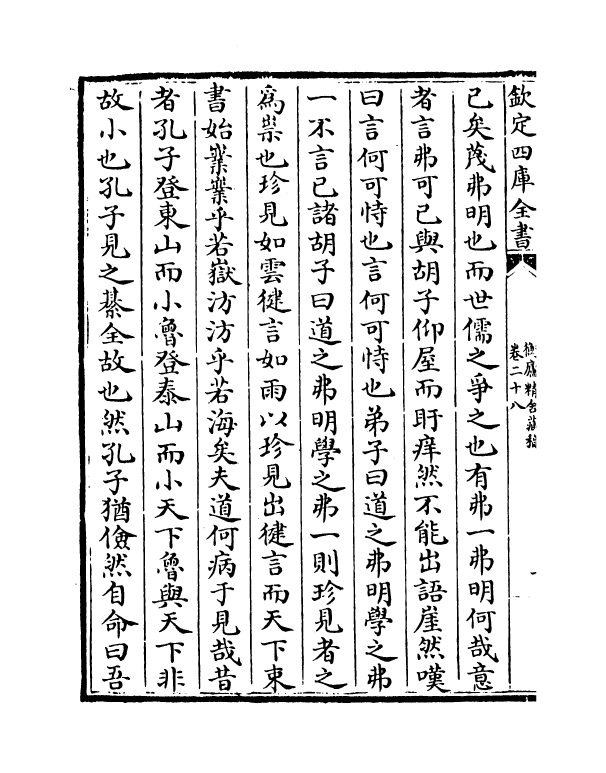 欽定四庫全書
衡廬精舍藏稿
卷二十八
已矣蔑弗明也而世儒之爭之也有弗一弗明何哉意
者言弗可已與胡子仰屋而盱痒然不能出語崖然嘆
曰言何可恃也言何可恃也弟子曰道之弗明學之弗
一不言已諸胡子曰道之弗明學之弗一則珍見者之
為祟也珍見如雲徤言如雨以珍見出徤言而天下朿
書始業業乎若嶽汸汸乎若海矣夫道何病于見哉昔
者孔子登東山而小魯登泰山而小天下魯與天下非
故小也孔子見之綦全故也然孔子猶儉然自命曰吾